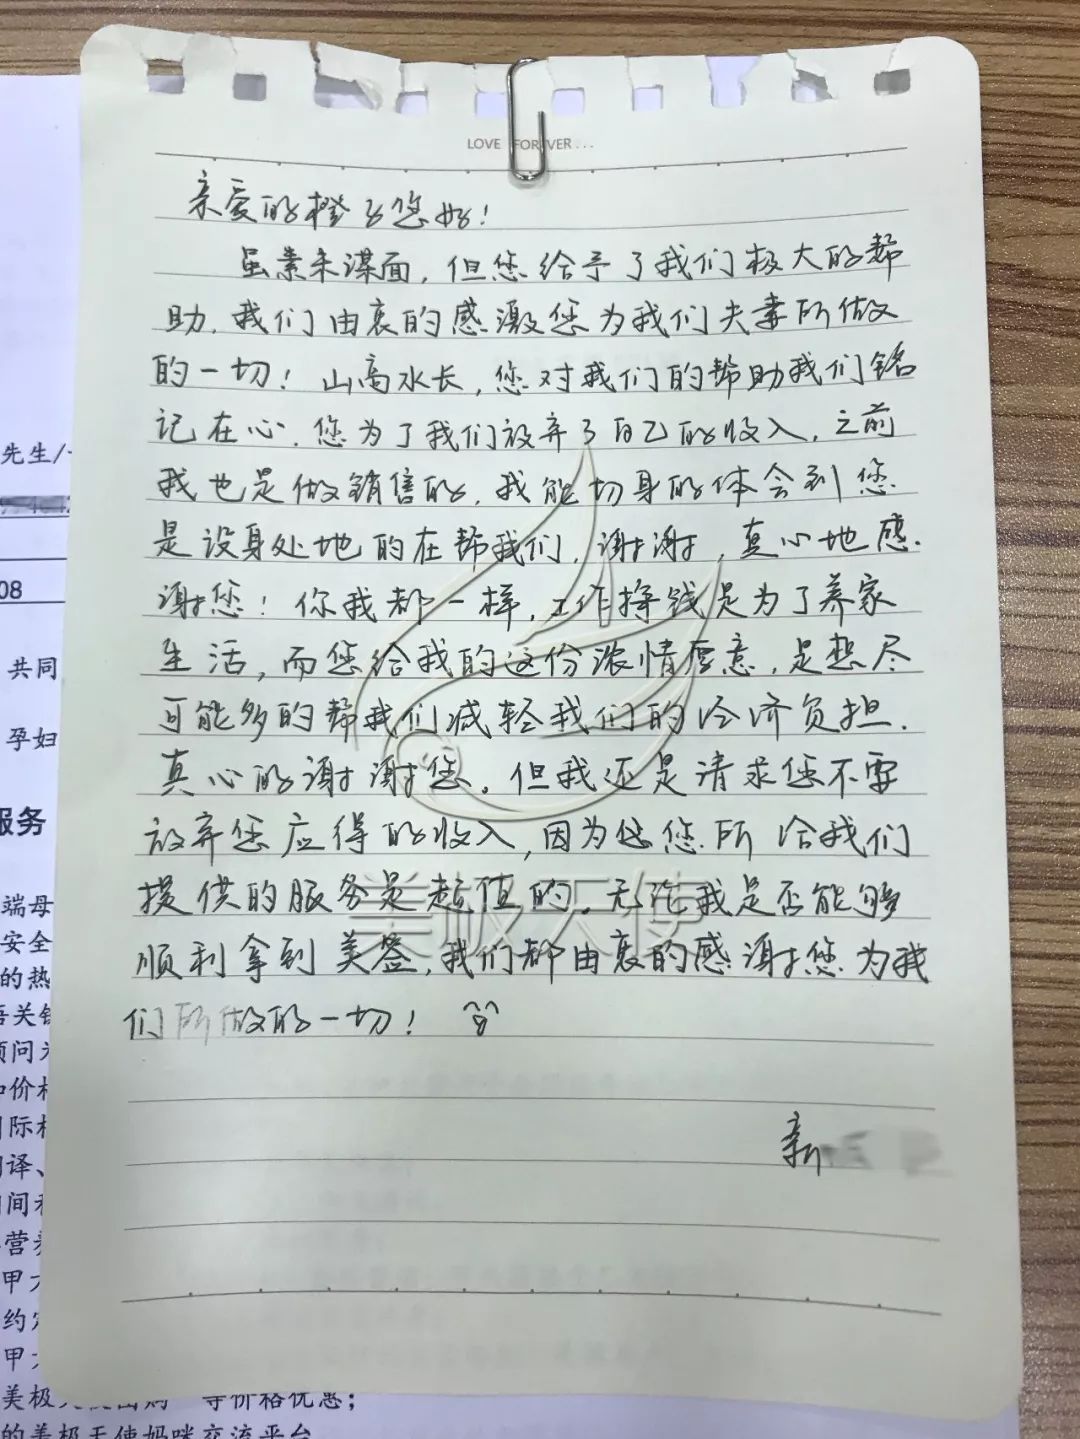 LOVE FOREVER...
亲爱的橙子您好！
虽素未谋面，但您给予了我们极大的帮
助，我们由衷的感激您为我们夫妻所做
的一切！山高水长，您对我们的帮助我们铭
记在心，您为了我们放弃了自己的收入，之前
我也是做销售的，我能切身的体会到您
是设身处地的在帮我们，谢谢，真心地感
谢您！你我都一样，工作挣钱是为了养家
生活，而您给我的这份浓情厚意，是想尽
可能多的帮我们减轻我们的经济负担，
真心的谢谢您。但我还是请求您不要
放弃您应得的收入，因为您所给我们
提供的服务是超值的，无论我是否能够
顺利拿到美签，我们都由衷的感谢您为我
们所做的一切！
新
美极天使
先生/
08
共同
孕妇
服务
端母
安全
的热
语关键
顾问
和价格
国际
翻译、
期间
营养
甲
约定
甲
等价格优惠；
的美极天使妈咪交流平台